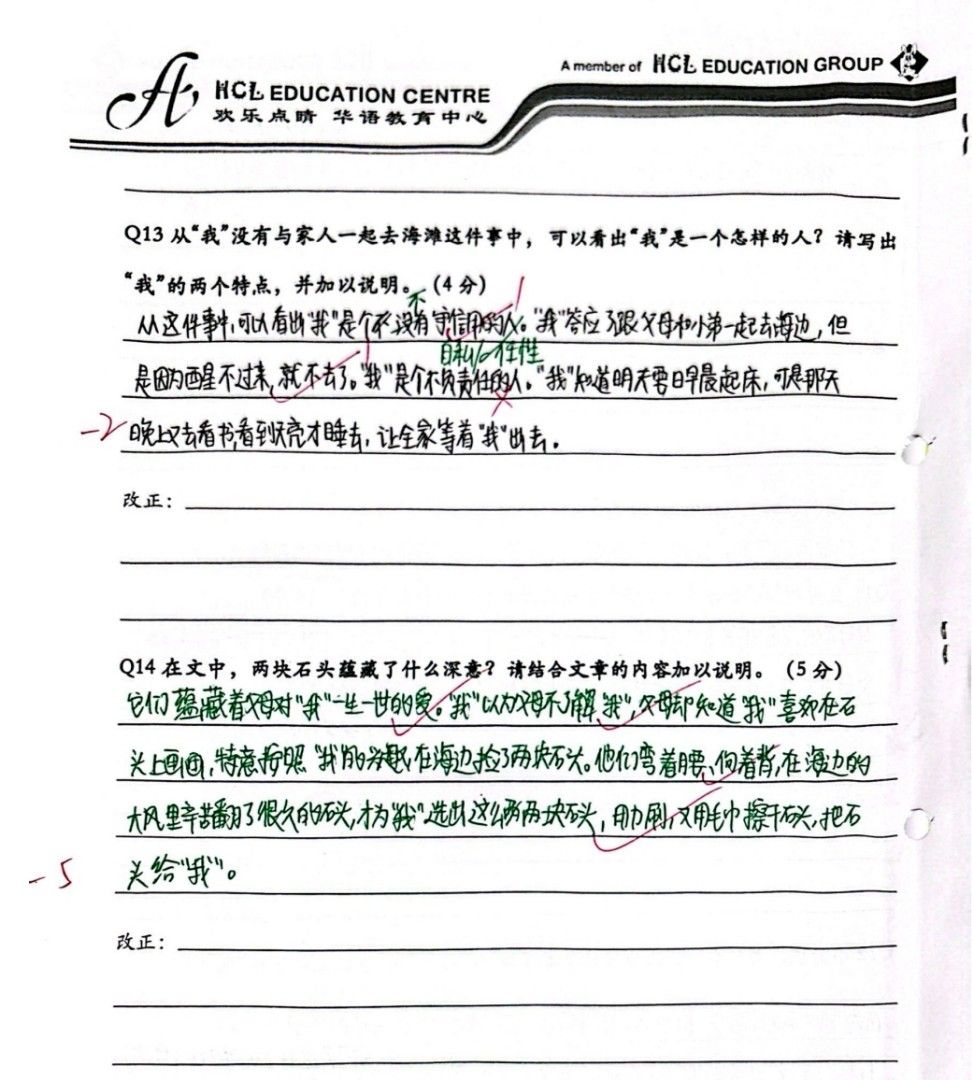 A member of HCL EDUCATION GROUP
HCL EDUCATION CENTRE
欢乐点睛 华语教育中心
Q13 从“我”没有与家人一起去海滩这件事中，可以看出“我”是一个怎样的人？请写出
“我”的两个特点，并加以说明。（4 分）
不
从这件事中，可以看出“我”是个 没有守信用的人。“我”答应了跟父母和小弟一起去海边，但
自私/任性
是因为 不过来，就不去了。“我”是个不负责任的人。“我”知道明天要早晨起床，可是那天
-2
晚上又去看书，看到天亮才睡去，让全家等着“我”出去。
改正：
Q14 在文中，两块石头蕴藏了什么深意？请结合文章的内容加以说明。（5 分）
它们蕴藏着父母对“我”一生一世的爱。“我”以为父母不了解“我”，父母却知道“我”喜欢在石
头上画画，特意按照“我”的 在海边捡了两块石头。他们弯着腰、 着背，在海边的
大风里辛苦翻了很久的石头，才为“我”选出这么 两块石头，用力刷，又用毛巾擦干石头，把石
头给“我”。
-5
改正：